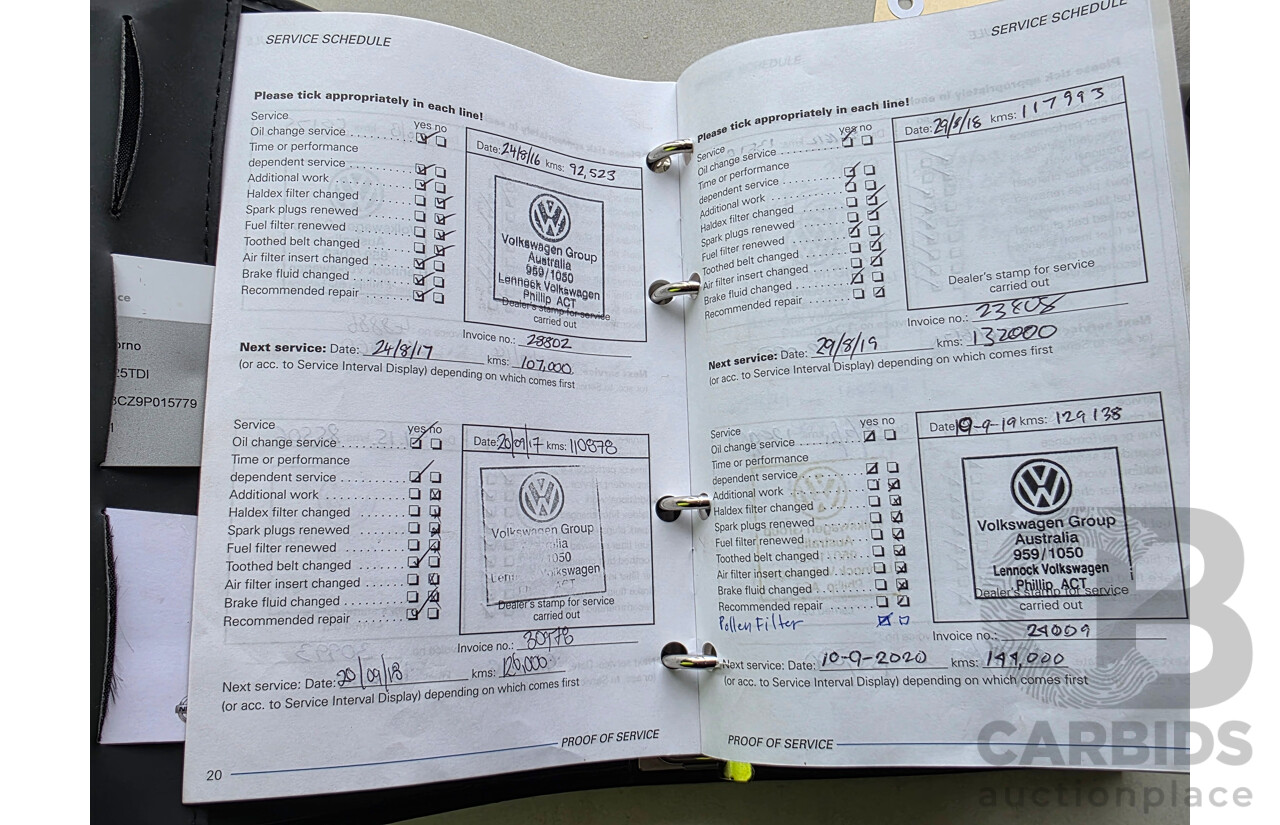 SERVICE SCHEDULE
Please tick appropriately in each line!
Service
yes no
Oil change service
Time or performance
dependent service
Additional work
Haldex filter changed
Spark plugs renewed
Fuel filter renewed
Toothed belt changed
Air filter insert changed
Brake fluid changed
Recommended repair
Date: 24/8/16 kms: 92,523
Volkswagen Group
Australia
959/1050
Lennock Volkswagen
Phillip ACT
Dealer's stamp for service
carried out
Invoice no.: 28802
Next service: Date: 24/8/17 kms: 107,000
(or acc. to Service Interval Display) depending on which comes first
Service
yes no
Oil change service
Time or performance
dependent service
Additional work
Haldex filter changed
Spark plugs renewed
Fuel filter renewed
Toothed belt changed
Air filter insert changed
Brake fluid changed
Recommended repair
Date: 20/09/17 kms: 110878
Volkswagen Group
1050
Volkswagen
ACT
Dealer's stamp for service
carried out
Invoice no.: 30978
Next service: Date: 20/09/18 kms:
(or acc. to Service Interval Display) depending on which comes first
PROOF OF SERVICE
20
SERVICE SCHEDULE
Please tick appropriately in each line!
Service
yes no
Oil change service
Time or performance
dependent service
Additional work
Haldex filter changed
Spark plugs renewed
Fuel filter renewed
Toothed belt changed
Air filter insert changed
Brake fluid changed
Recommended repair
Date: 29/8/18 kms: 117993
Dealer's stamp for service
carried out
Invoice no.: 23808
Next service: Date: 29/8/19 kms: 132000
(or acc. to Service Interval Display) depending on which comes first
Service
yes no
Oil change service
Time or performance
dependent service
Additional work
Haldex filter changed
Spark plugs renewed
Fuel filter renewed
Toothed belt changed
Air filter insert changed
Brake fluid changed
Recommended repair
Pollen Filter
Date: 19-9-19 kms: 129138
Volkswagen Group
Australia
959/1050
Lennock Volkswagen
Phillip ACT
Dealer's stamp for service
carried out
Invoice no.: 24009
Next service: Date: 10-9-2020 kms: 144,000
(or acc. to Service Interval Display) depending on which comes first
PROOF OF SERVICE
ce
orno
25TDI
3CZ9P015779
CARBIDS
auctionplace